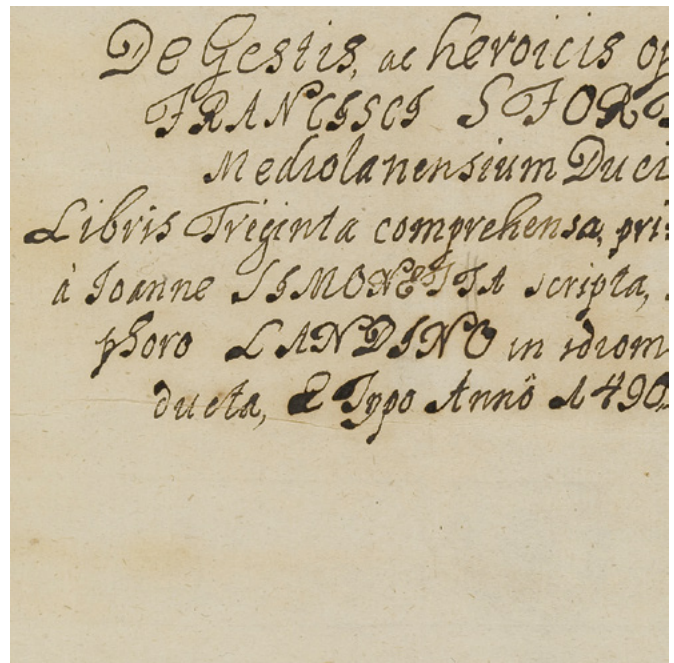 De Gestis, ac heroicis op
FRANCISCI SFORT
Mediolanensium Duci
Libris Triginta comprehensa, pri:
à Joanne SIMONETTA scripta,
phoro LANDINO in idiom
ducta, & Typo Annô 1490.